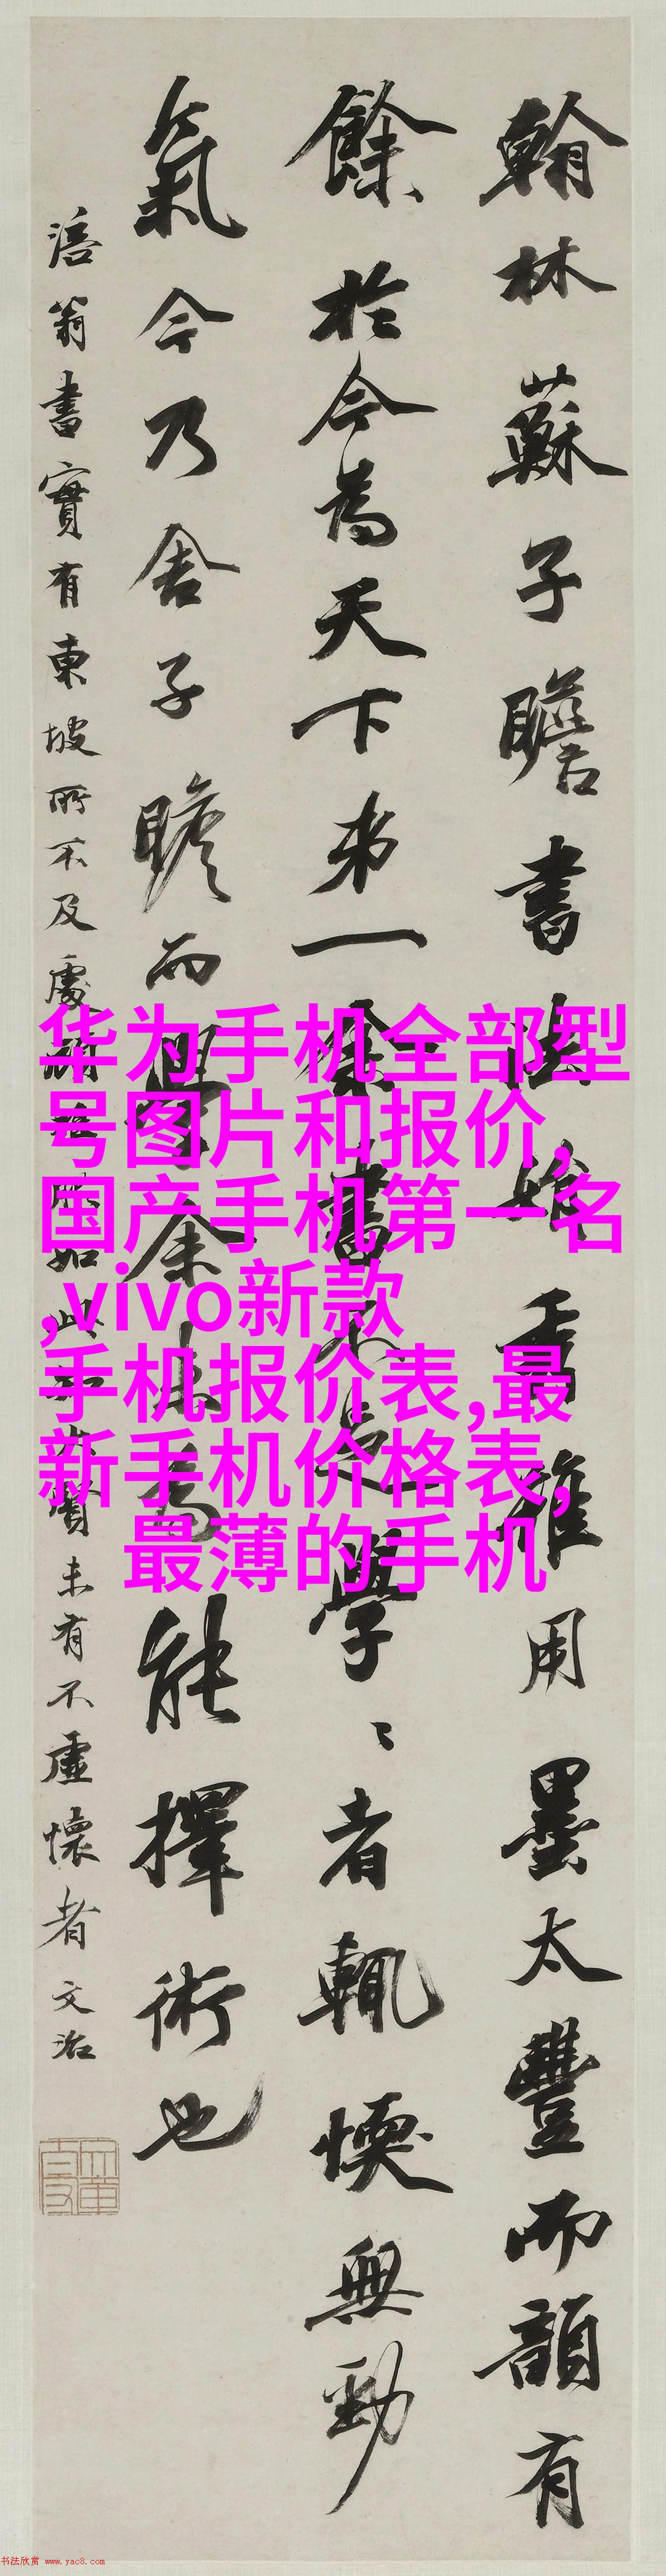 翰林蘇子瞻書法娟秀雖用墨太豐而韻有
餘於今為天下第一余書不足學〻者輒愞無勁
氣今乃舍子瞻而學余未為能擇術也
涪翁書實有東坡所不及處如此大賢未有不虛懷者文治
华为手机全部型
号图片和报价,
国产手机第一名
,vivo新款
手机报价表,最
新手机价格表,
最薄的手机
书法欣赏 www.yac8.com